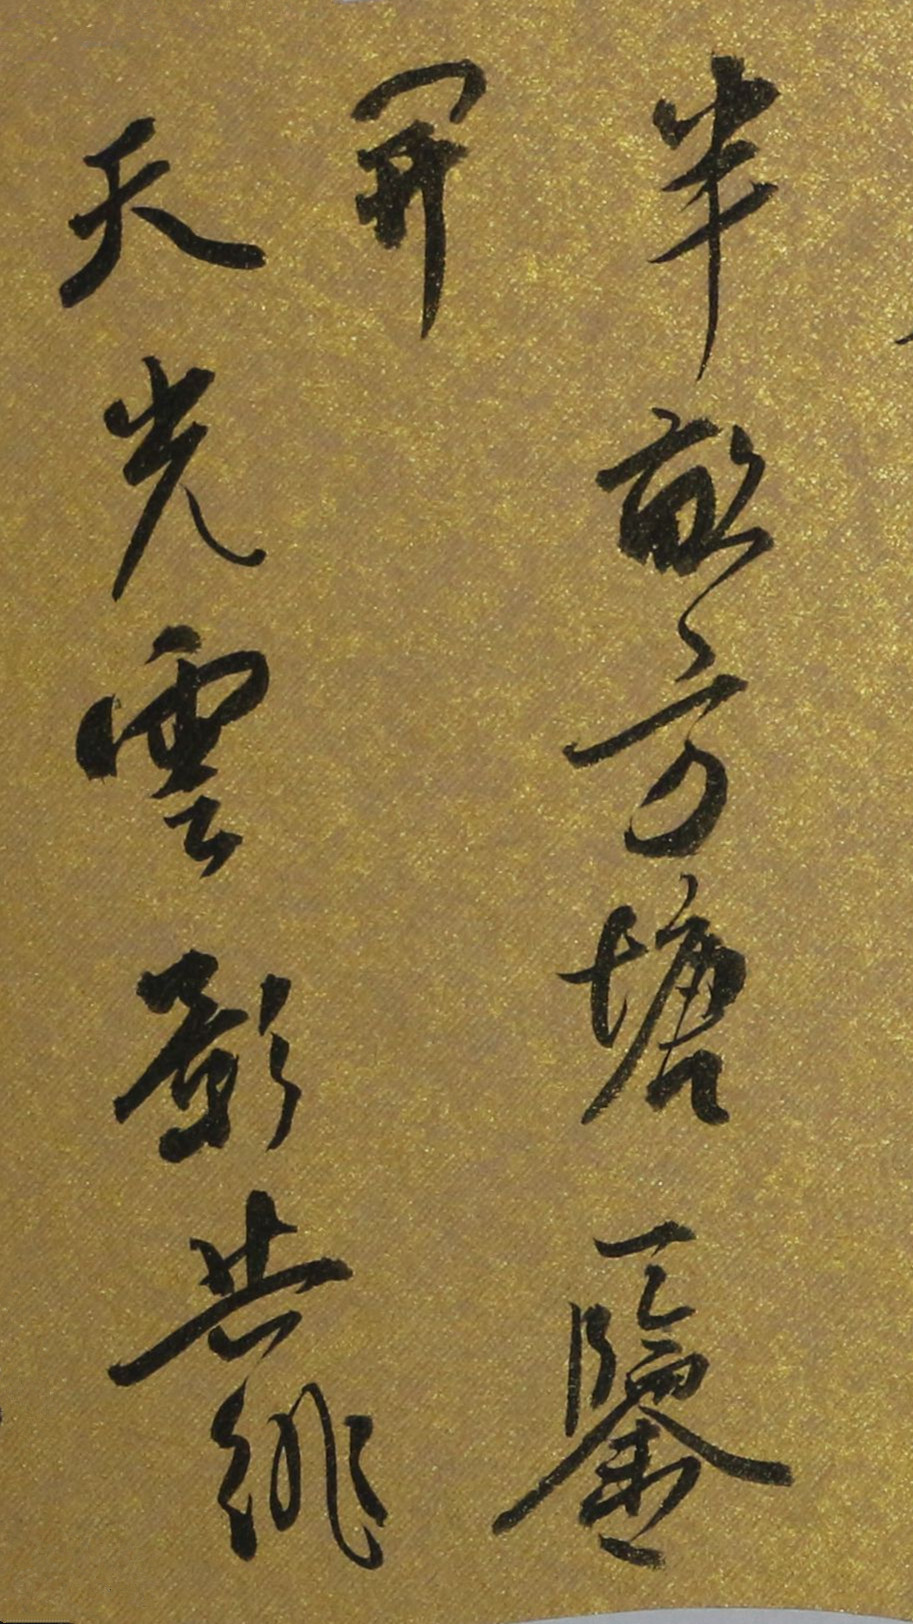 半畝方塘一鑒
開
天光雲影共徘